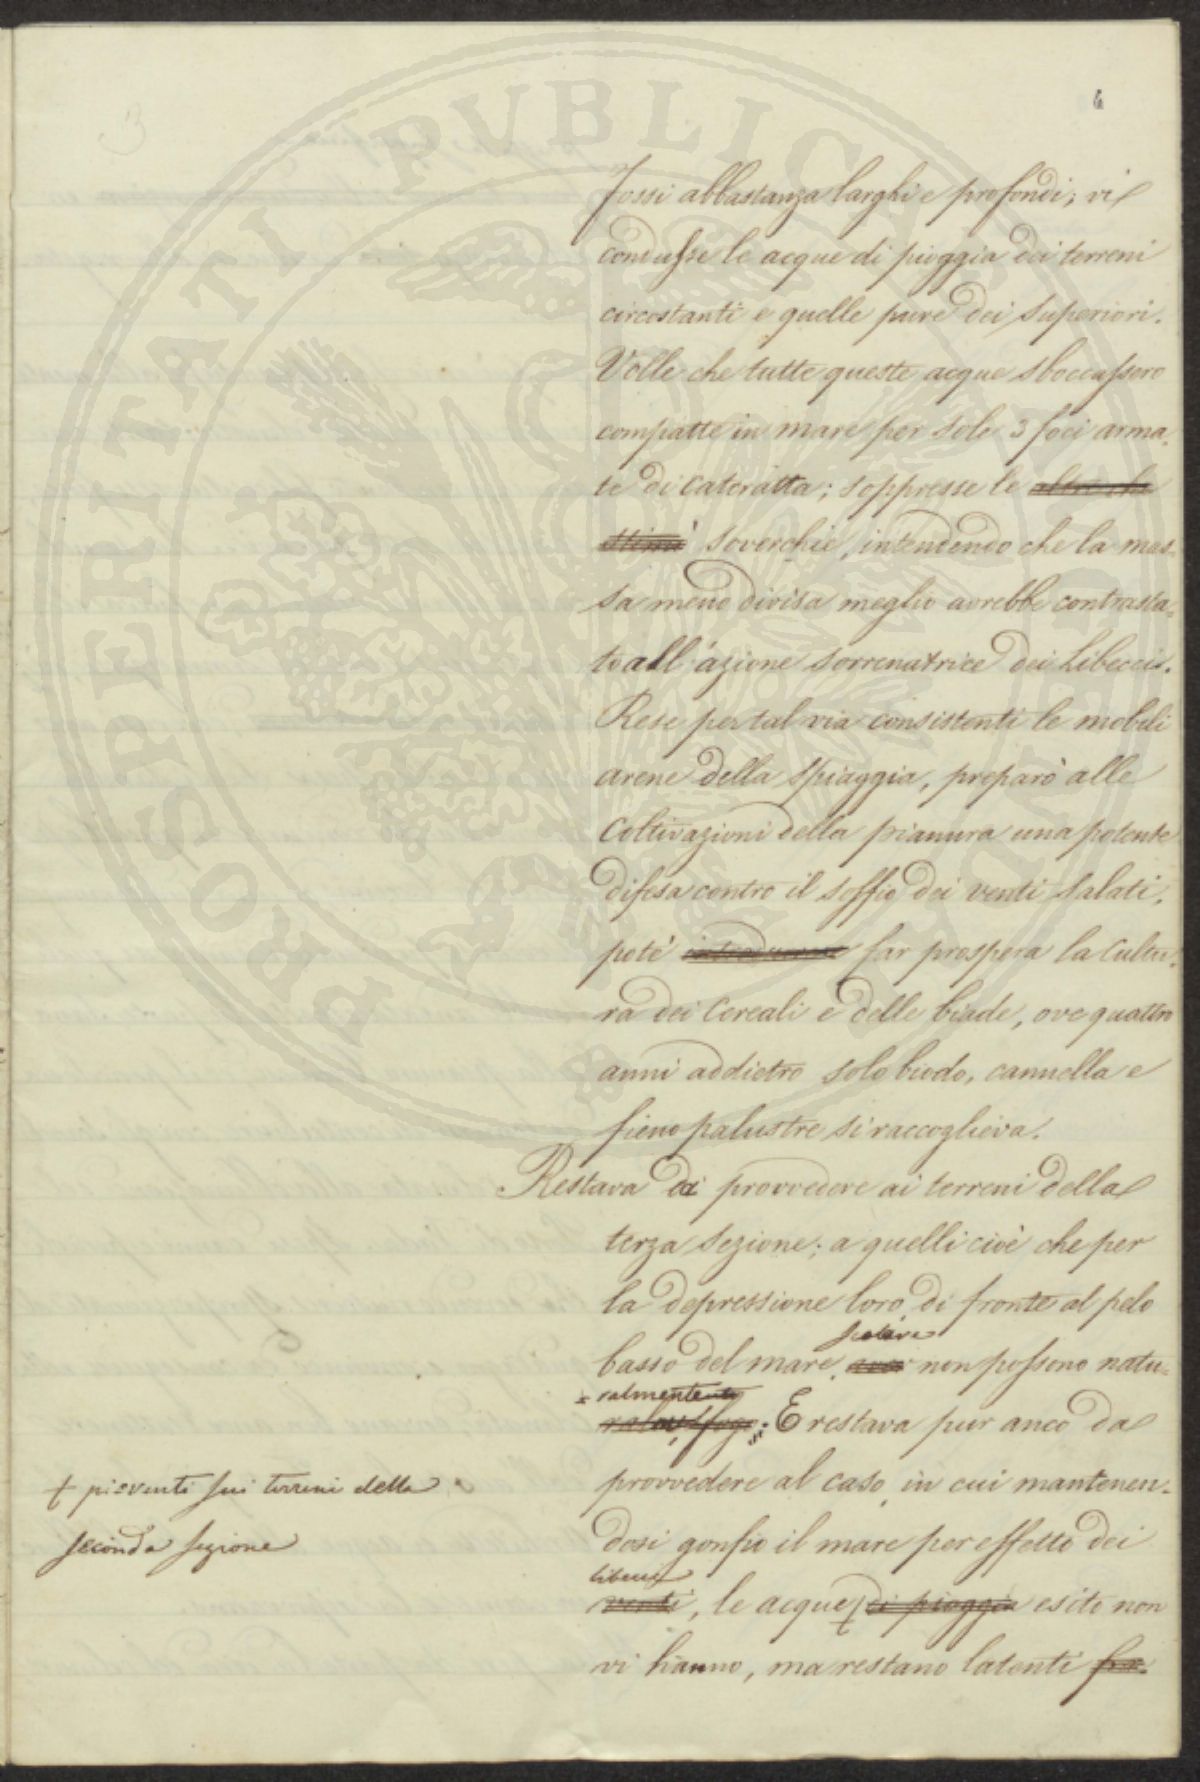 4
fossi abbastanza larghi e profondi; vi
condusse le acque di pioggia dei terreni
circostanti e quelle pure dei superiori.
Volle che tutte queste acque sboccassero
compatte in mare per sole 3 foci arma-
te di cateratta; soppresse le altre che
stimò soverchie, intendendo che la mas-
sa meno divisa meglio avrebbe contrasta-
to all'azione sorrenatrice dei Libecci.
Rese per tal via consistenti le mobili
arene della spiaggia, preparò alle
Coltivazioni della pianura una potente
difesa contro il soffio dei venti salati,
potè introdurre far prospera la Cultu-
ra dei Cereali e delle biade, ove quattro
anni addietro solo biodo, cannella e
fieno palustre si raccoglieva.
Restava da provvedere ai terreni della
terza sezione; a quelli cioè che per
la depressione loro di fronte al pelo
basso del mare, non possono natu-
E restava pur anco da
provvedere al caso, in cui mantenen-
dosi gonfio il mare per effetto dei
libecci
venti, le acque di pioggia esito non
vi hanno, ma restano latenti
+ pioventi sui terreni della
seconda sezione
PROSPERITATI PUBLICAE